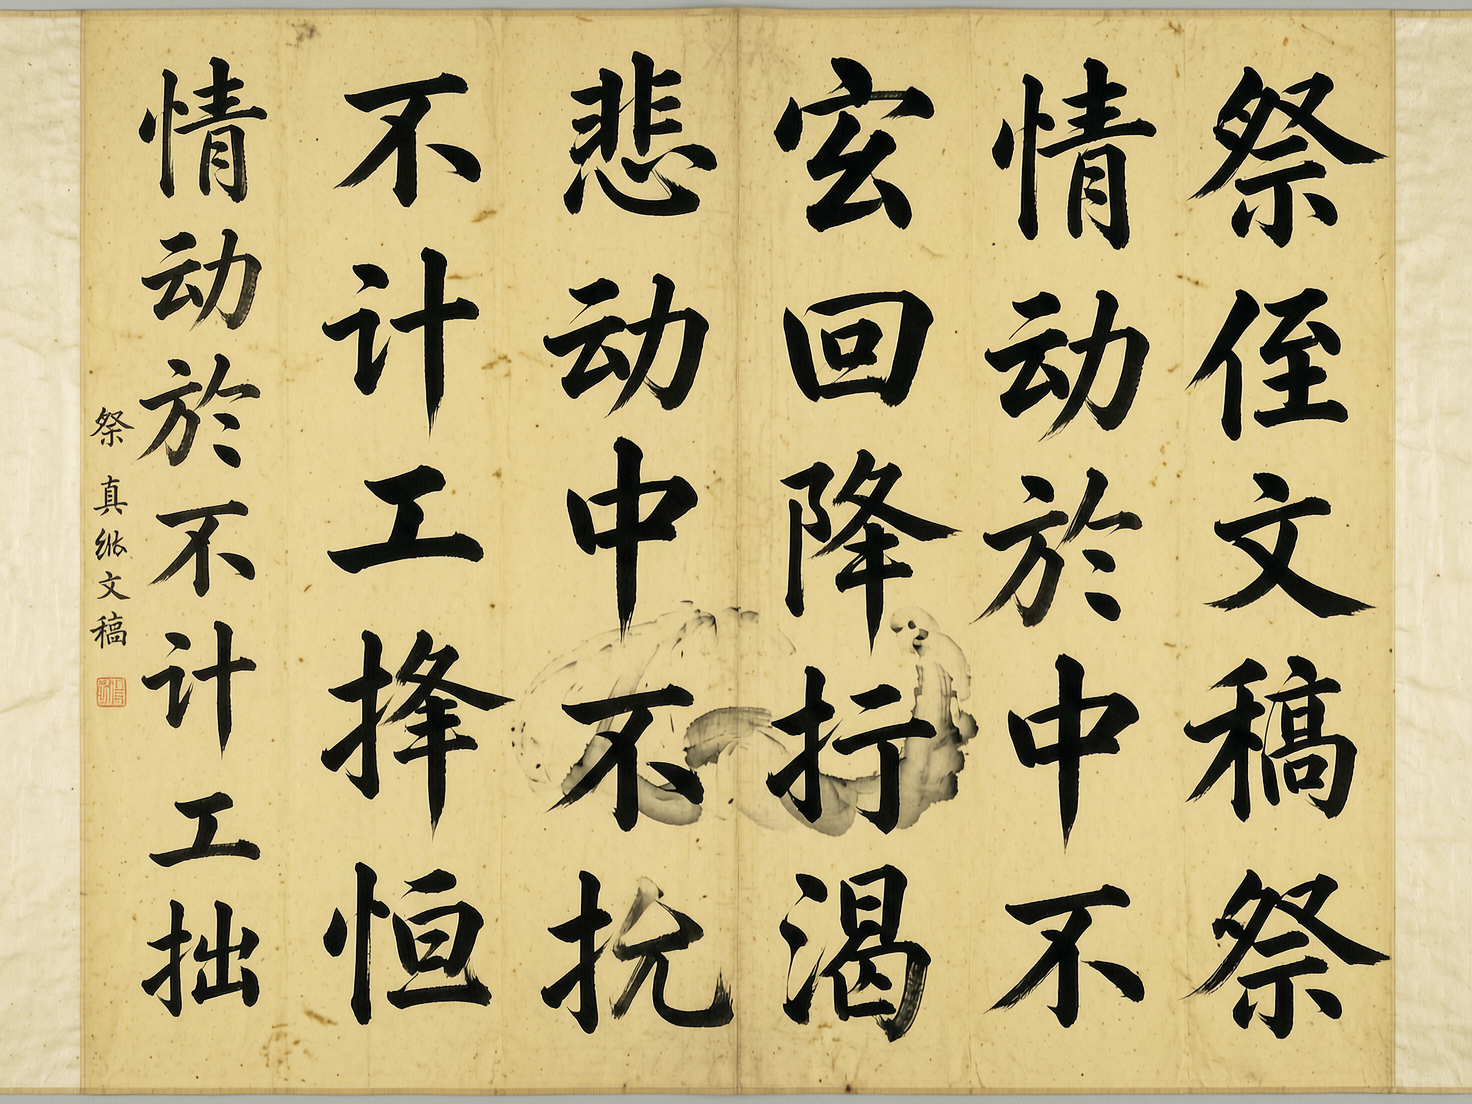 祭侄文稿祭
情动於中不
回降渴
悲动中不
不计工恒
情动於不计工拙
祭真文稿